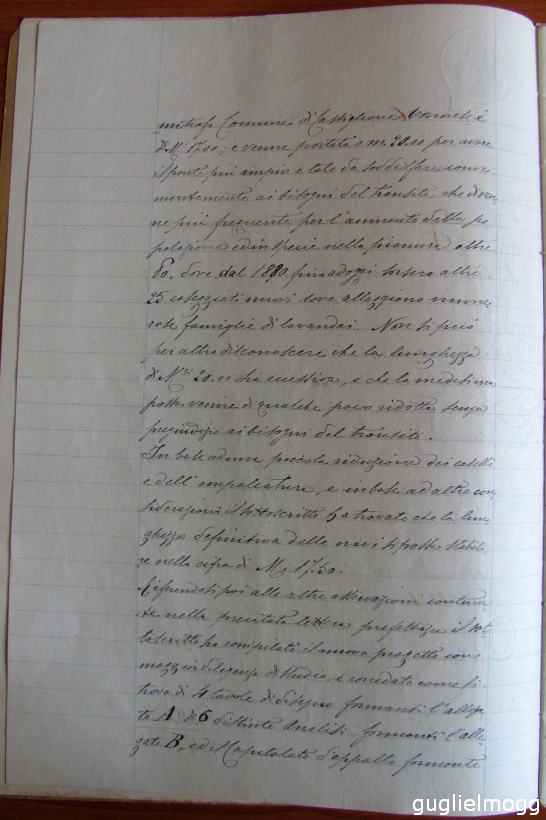 mitrofe Comune di Castiglione Torinese è
di M. 17.00; e venne portata a m. 20.00 per avere
il ponte più ampio e tale da soddisfare conve
nientemente ai bisogni del transito, che diven
ne più frequente per l'aumento della po
polazione ed in specie nella pianura oltre
Po, dove dal 1880 fino ad oggi sorsero oltre
25 caseggiati nuovi dove alloggiano nume
rose famiglie di lavandai. Non si può
per altro disconoscere che la lunghezza
di M.ri 20.00 sia eccessiva, e che la medesima
possa venire di qualche poco ridotta senza
pregiudizio ai bisogni del transito.
In base ad una piccola riduzione dei caselli
e dell'impalcatura, e in base ad altre con
siderazioni il sottoscritto ha trovato che la lun
ghezza definitiva delle navi si possa stabili
re nella cifra di M. 17.50.
Riferendosi poi alle altre osservazioni contenu
te nella precitata lettera prefettizia il sot
toscritto ha compilato il nuovo progetto con
maggior diligenza di studio, e corredato come si
trova di 4 tavole di disegno formanti l'allega
to A di 6 distinte Analisi formanti l'alle
gato B, ed il Capitolato d'appalto formante
guglielmogg